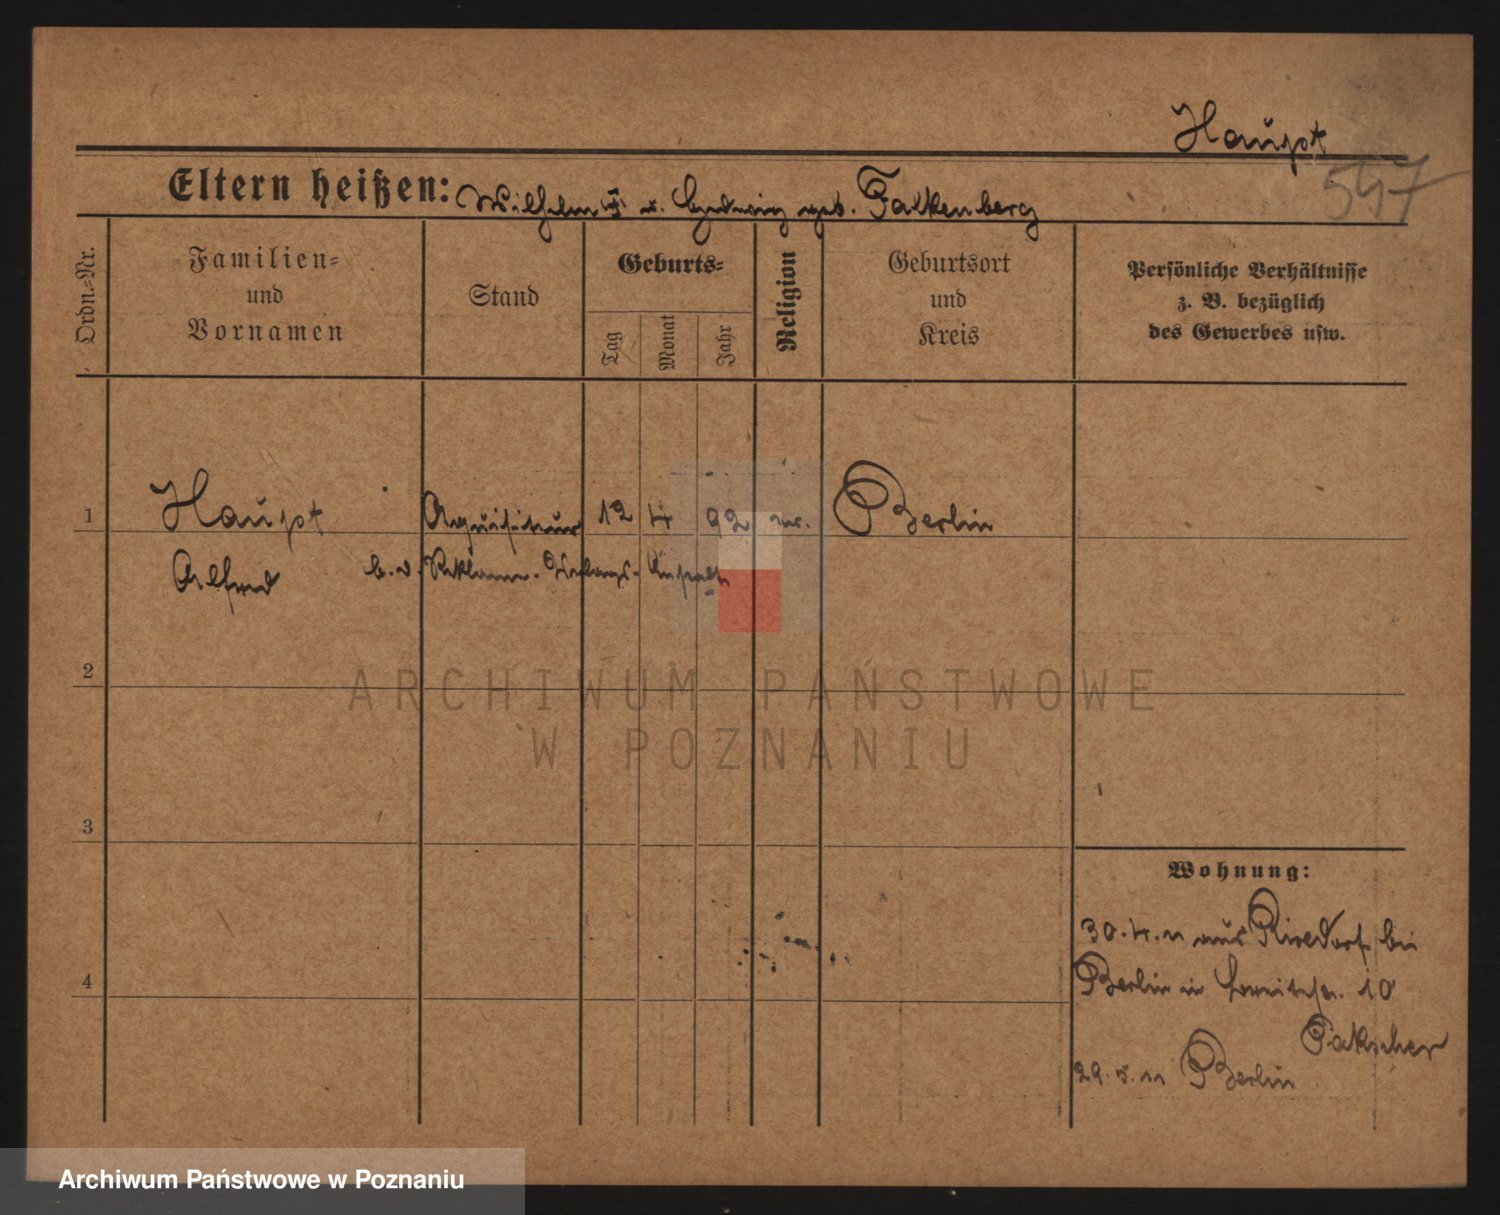 Haupt
547
Eltern heißen: Wilhelm u. Hedwig geb. Falkenberg
Ordn.-Nr.
Familien-
und
Vornamen
Stand
Geburts-
Tag
Monat
Jahr
Religion
Geburtsort
und
Kreis
Persönliche Verhältnisse
z. B. bezüglich
des Gewerbes usw.
1
Haupt
Aquisiteur
12
4
92
ev.
Berlin
Alfred
b. d. Reklame-Verlags-Anstalt
2
ARCHIWUM PAŃSTWOWE
W POZNANIU
3
Wohnung:
30.4.11 aus Rixdorf bei
4
Berlin in 10
Pakscher
29.5.11 Berlin
Archiwum Państwowe w Poznaniu